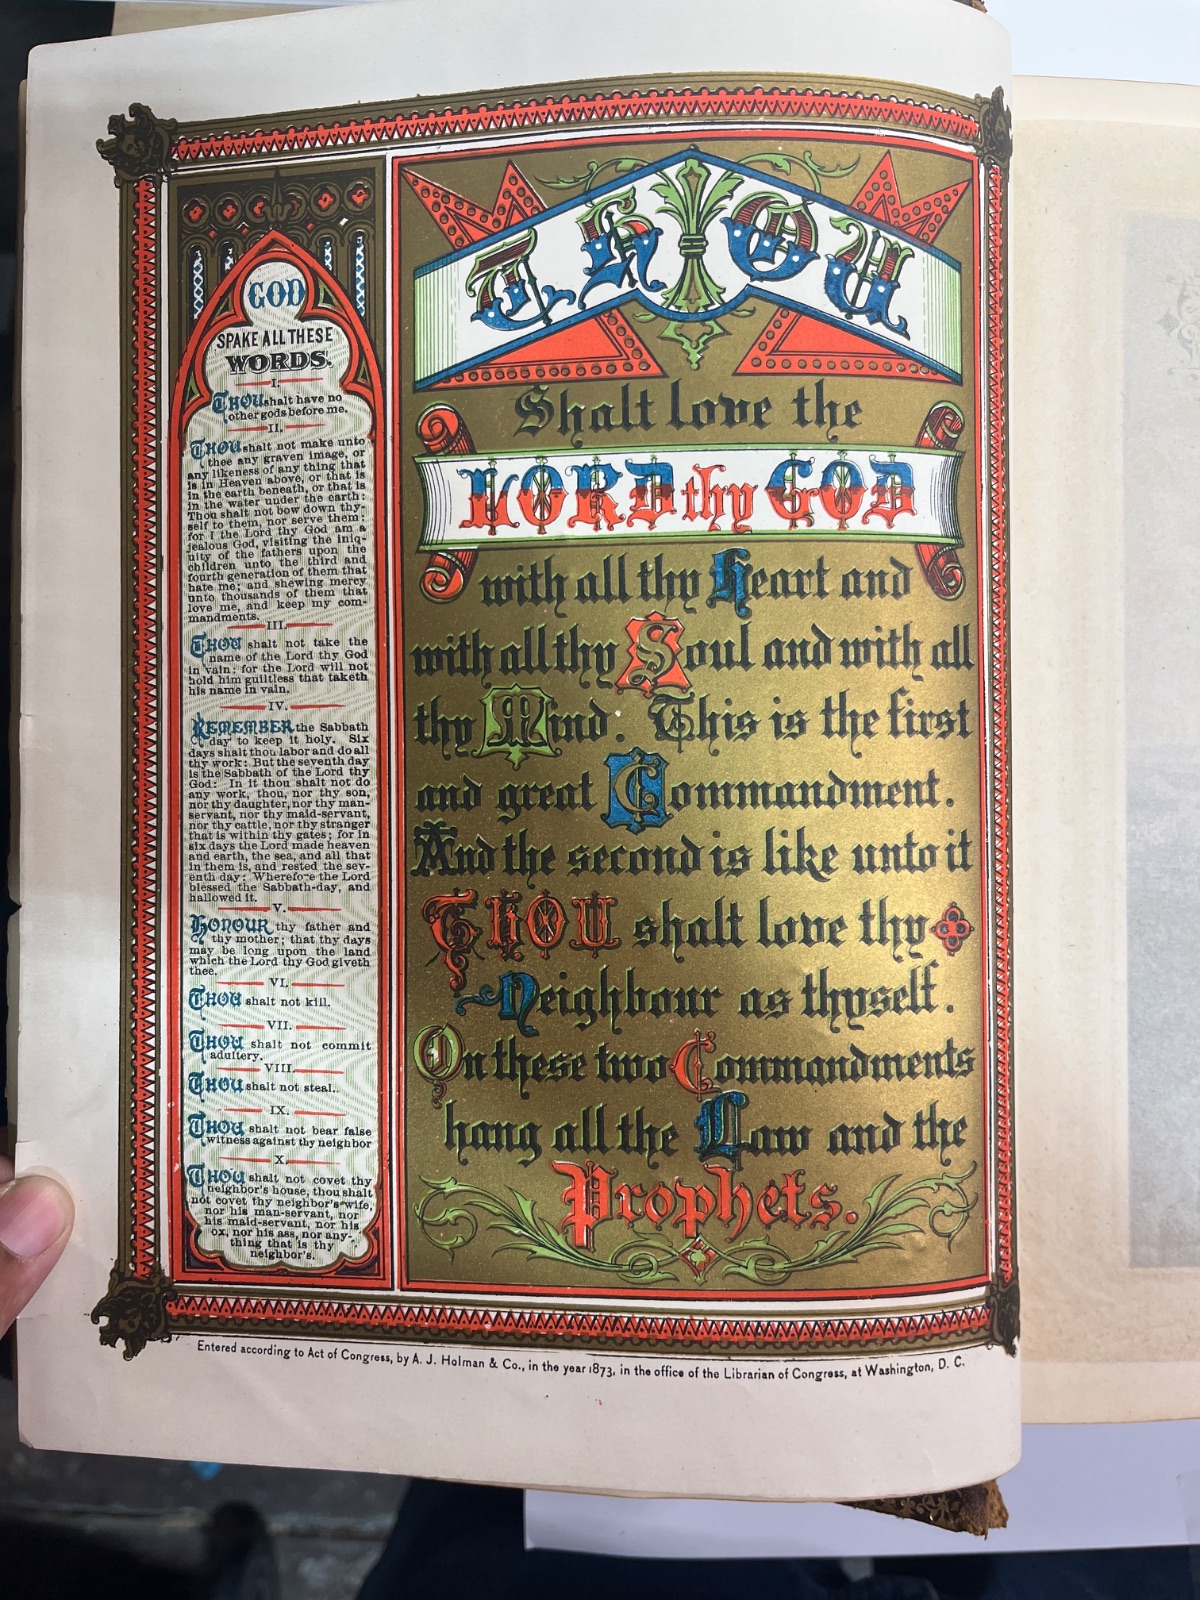 GOD
SPAKE ALL THESE
WORDS.
I.
THOU shalt have no
other gods before me.
II.
THOU shalt not make unto
thee any graven image, or
any likeness of any thing that
is in Heaven above, or that is
in the earth beneath, or that is
in the water under the earth:
Thou shalt not bow down thy-
self to them, nor serve them:
for I the Lord thy God am a
jealous God, visiting the iniq-
uity of the fathers upon the
children unto the third and
fourth generation of them that
hate me; and shewing mercy
unto thousands of them that
love me, and keep my com-
mandments.
III.
THOU shalt not take the
name of the Lord thy God
in vain: for the Lord will not
hold him guiltless that taketh
his name in vain.
IV.
REMEMBER the Sabbath
day to keep it holy. Six
days shalt thou labor and do all
thy work: But the seventh day
is the Sabbath of the Lord thy
God: In it thou shalt not do
any work, thou, nor thy son,
nor thy daughter, nor thy man-
servant, nor thy maid-servant,
nor thy cattle, nor thy stranger
that is within thy gates; for in
six days the Lord made heaven
and earth, the sea, and all that
in them is, and rested the sev-
enth day: Wherefore the Lord
blessed the Sabbath-day, and
hallowed it.
V.
HONOUR thy father and
thy mother; that thy days
may be long upon the land
which the Lord thy God giveth
thee.
VI.
THOU shalt not kill.
VII.
THOU shalt not commit
adultery.
VIII.
THOU shalt not steal.
IX.
THOU shalt not bear false
witness against thy neighbor
X.
THOU shalt not covet thy
neighbor's house, thou shalt
not covet thy neighbor's wife,
nor his man-servant, nor
his maid-servant, nor his
ox, nor his ass, nor any-
thing that is thy
neighbor's.
THOU
Shalt love the
LORD thy GOD
with all thy Heart and
with all thy Soul and with all
thy Mind. This is the first
and great Commandment.
And the second is like unto it
THOU shalt love thy
Neighbour as thyself.
On these two Commandments
hang all the Law and the
Prophets.
Entered according to Act of Congress, by A. J. Holman & Co., in the year 1873, in the office of the Librarian of Congress, at Washington, D. C.